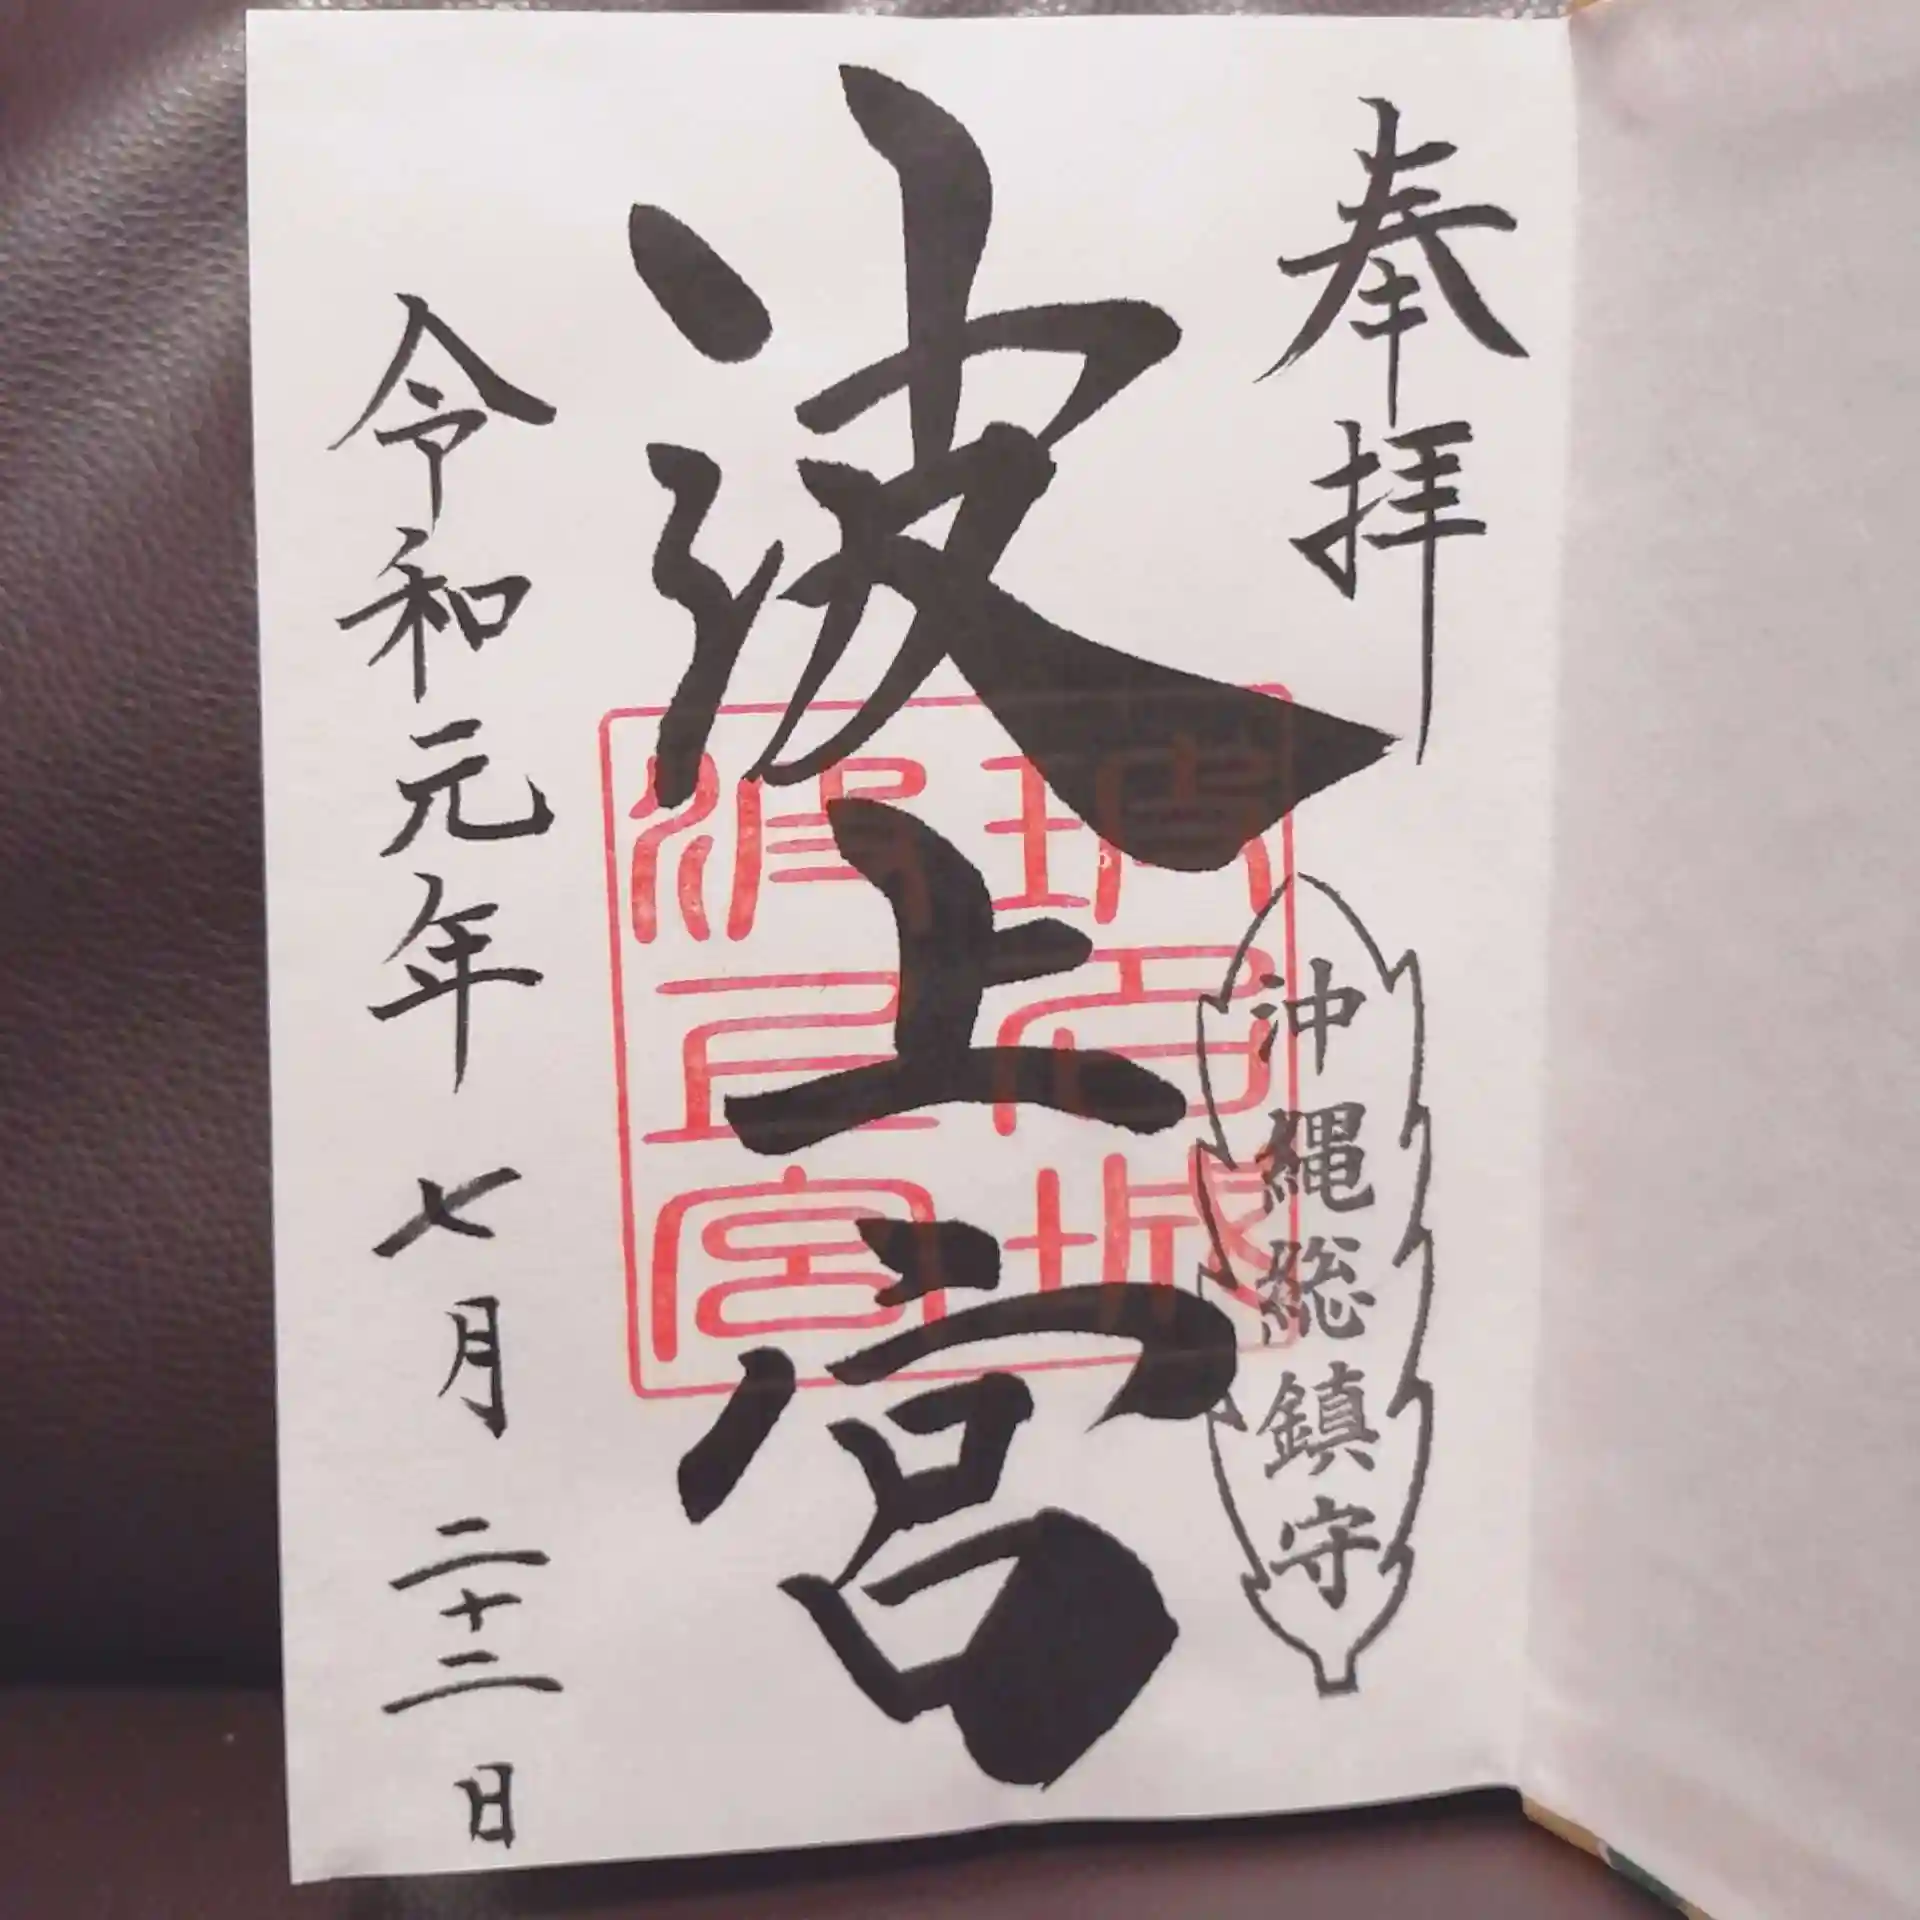 奉拝
沖縄総鎮守
波上宮
令和元年 七月 二十二日